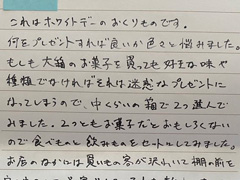 これはホワイトデーのおくりものです。
何をプレゼントすれば良いか色々と悩みました。
もしも大箱のお菓子を買っても好きな味や
種類でなければそれは迷惑なプレゼントに
なってしまうので、中くらいの箱で2つ選んで
みました。2つともお菓子だとおもしろくない
ので食べものと飲みものをセットにしてみました。
お店のなかには買いもの客が沢山いて棚の前を